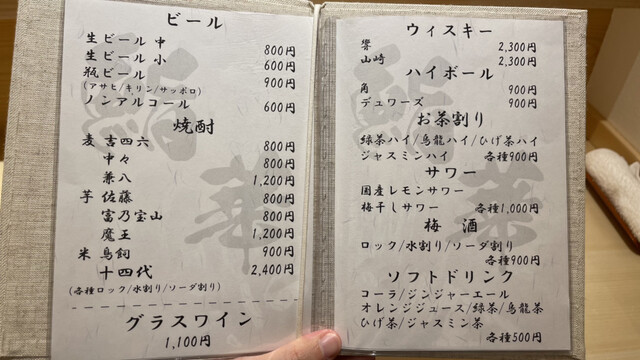 ビール
生ビール 中 800円
生ビール 小 600円
瓶ビール 900円
(アサヒ/キリン/サッポロ)
ノンアルコール 600円
焼酎
麦 吉四六 800円
中々 800円
兼八 1,200円
芋 佐藤 800円
富乃宝山 800円
魔王 1,200円
米 鳥飼 900円
十四代 2,400円
(各種ロック/水割り/ソーダ割り)
グラスワイン
1,100円
ウィスキー
響 2,300円
山崎 2,300円
ハイボール
角 900円
デュワーズ 900円
お茶割り
緑茶ハイ/烏龍ハイ/ひげ茶ハイ
ジャスミンハイ 各種900円
サワー
国産レモンサワー
梅干しサワー 各種1,000円
梅 酒
ロック/水割り/ソーダ割り
各種900円
ソフトドリンク
コーラ/ジンジャーエール
オレンジジュース/緑茶/烏龍茶
ひげ茶/ジャスミン茶
各種500円